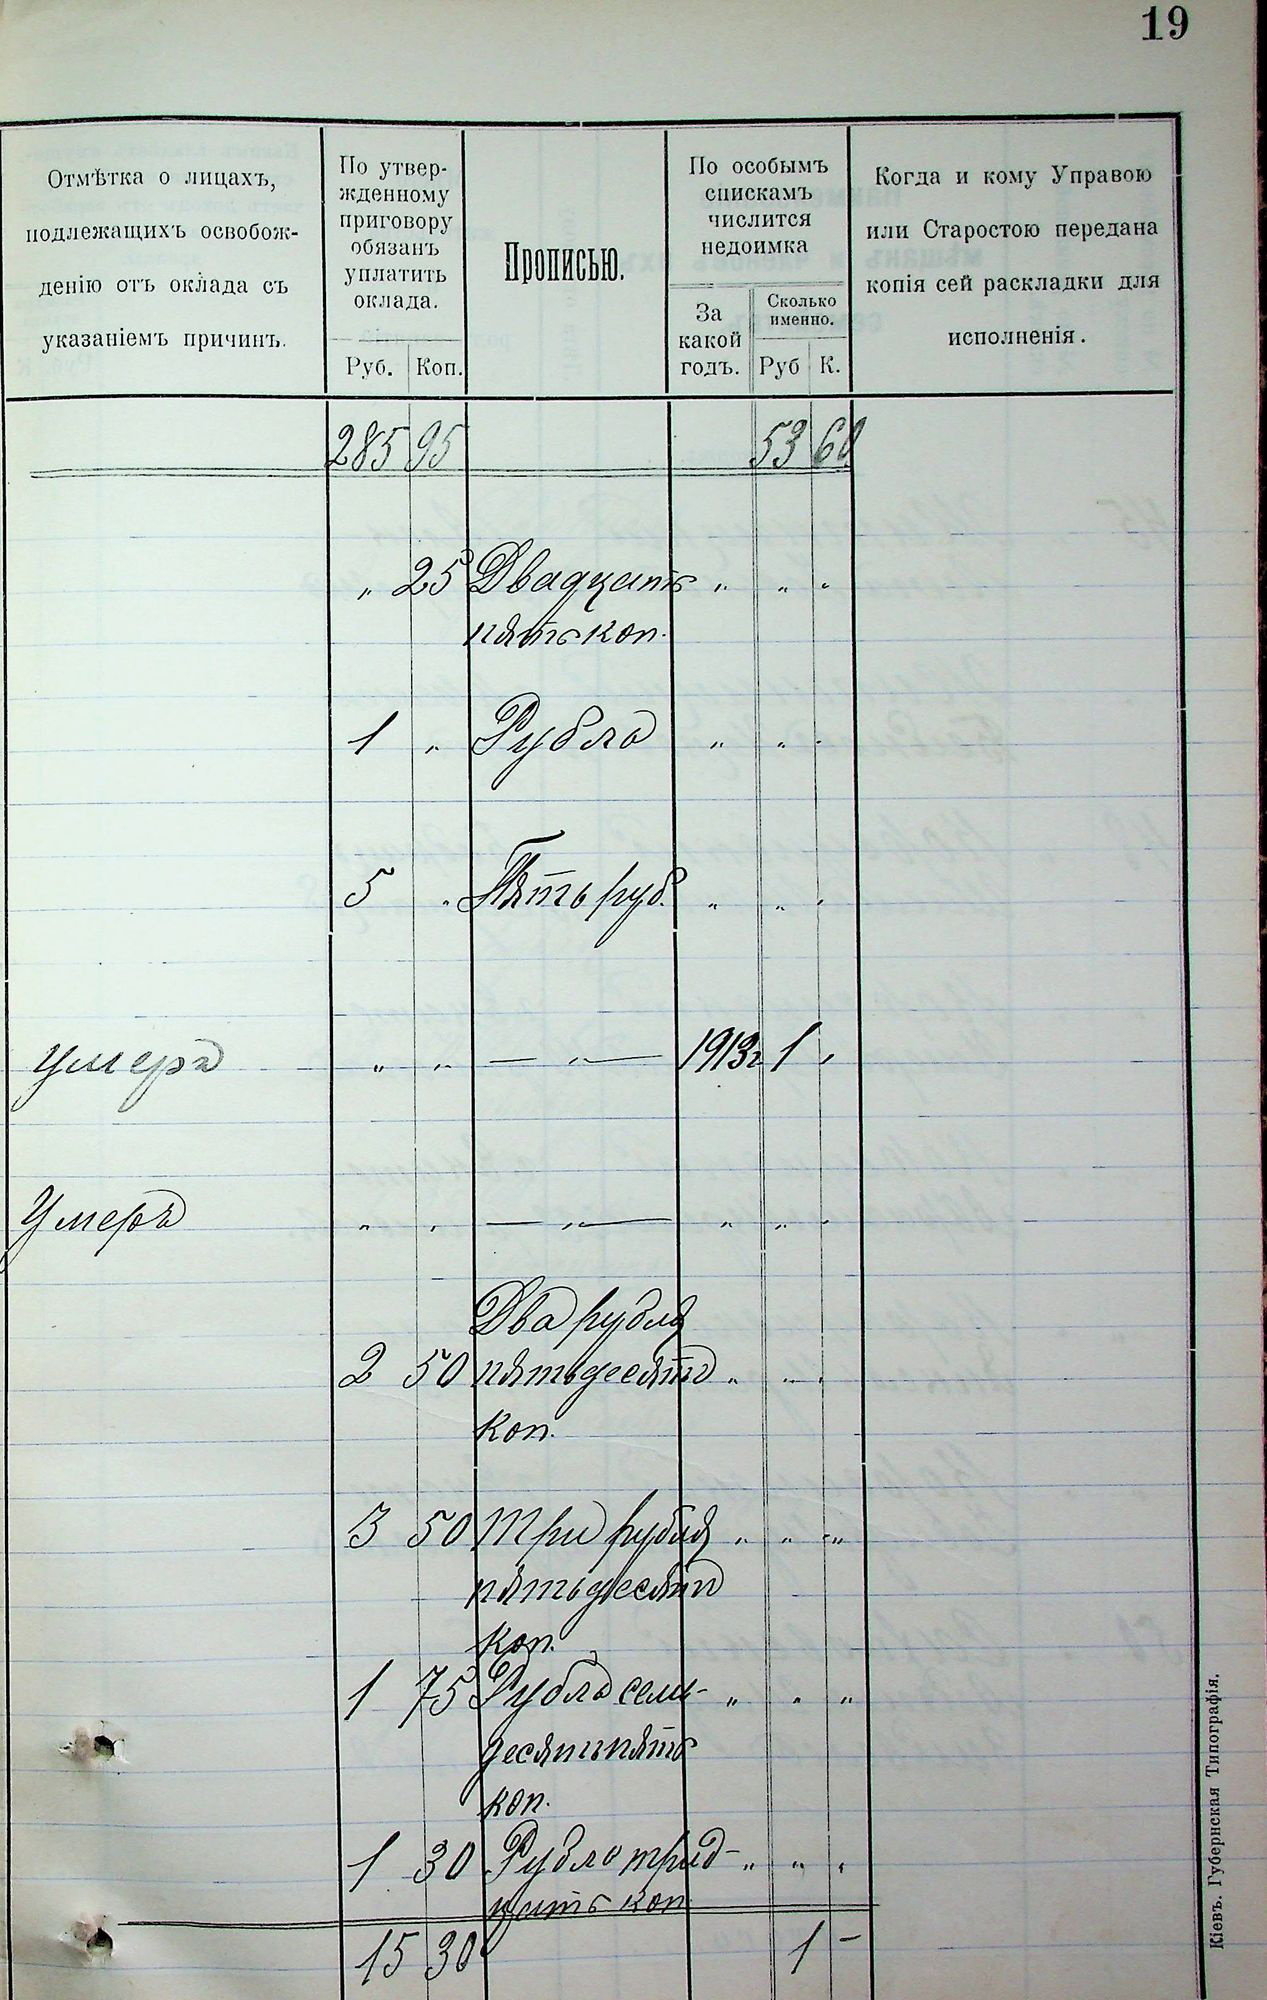 19
Отмѣтка о лицахъ,
подлежащихъ освобож-
денію отъ оклада съ
указаніемъ причинъ.
По утвер-
жденному
приговору
обязанъ
уплатить
оклада.
Руб. Коп.
Прописью.
По особымъ
спискамъ
числится
недоимка
За
какой
годъ.
Сколько
именно.
Руб К.
Когда и кому Управою
или Старостою передана
копія сей раскладки для
исполненія.
285 95 53 60
„ 25 Двадцать „ „ „
пять коп.
1 „ Рубль „ „ „
5 „ Пять руб. „ „ „
умеръ „ „ — „ — 1913г 1 „
Умеръ „ „ — „ — „ „ „
Два рубля
2 50 пятьдесятъ „ „ „
коп.
3 50 Три рубля „ „ „
пятьдесятъ
коп.
1 75 Рубль семь- „ „ „
десятьпять
коп.
1 30 Рубль трид- „ „ „
цать коп
15 30 1 –
Кіевъ. Губернская Типографія.